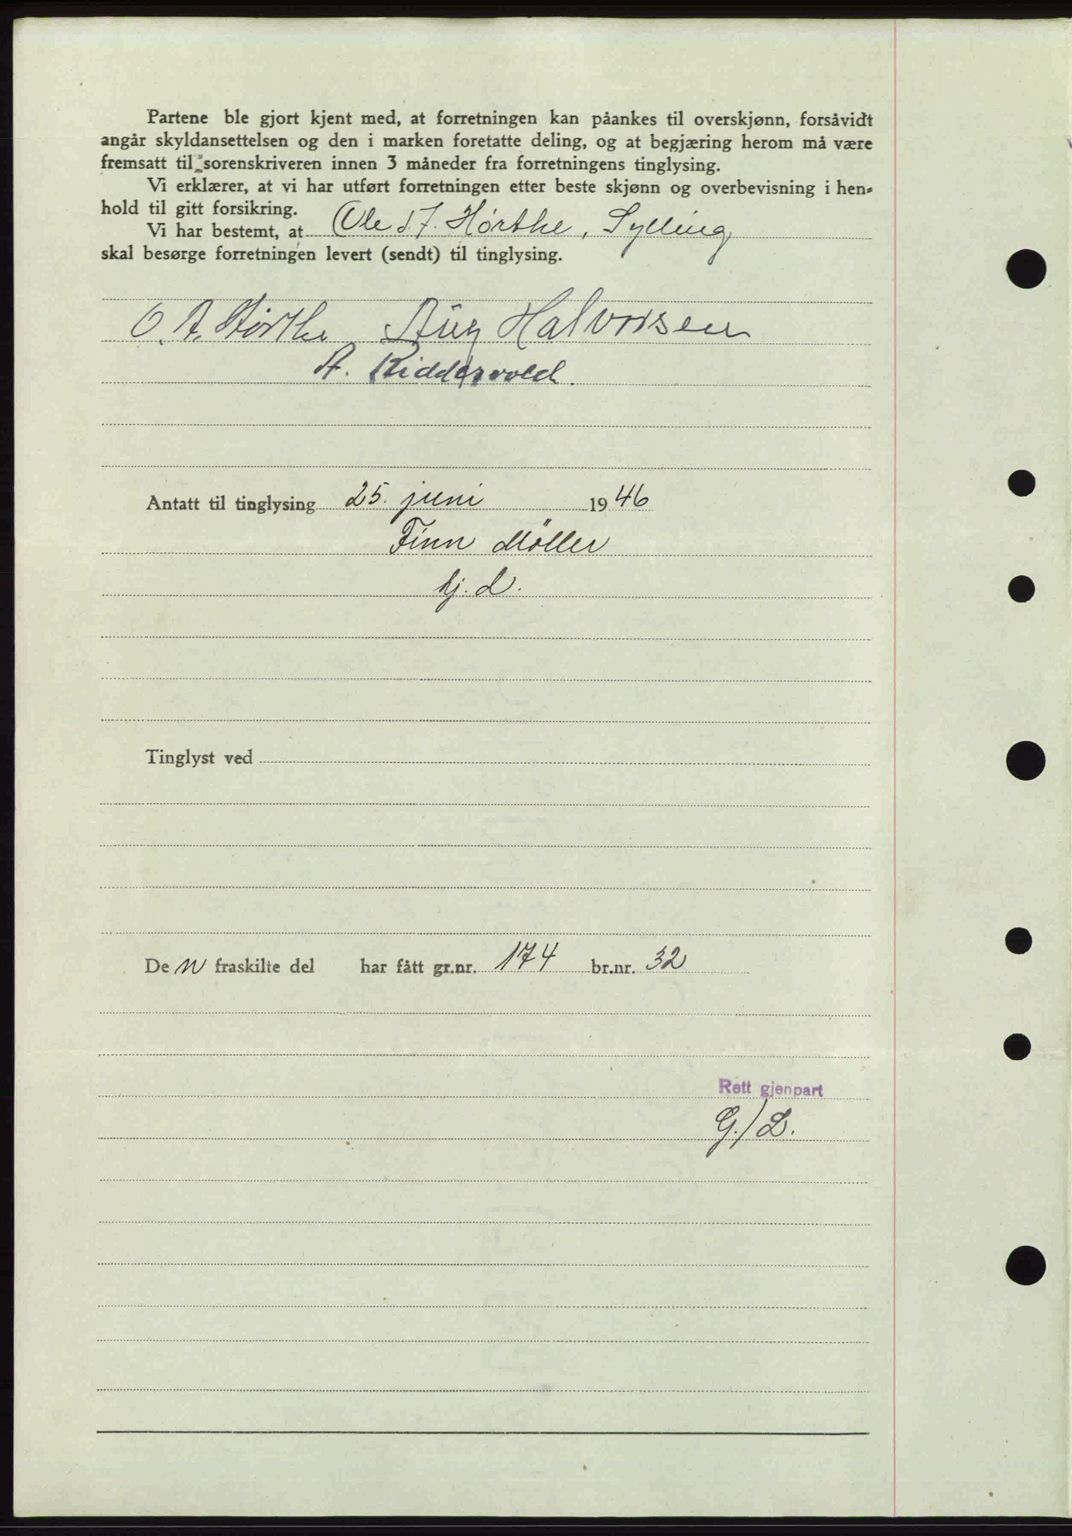 Partene ble gjort kjent med, at forretningen kan påankes til overskjønn, forsåvidt
angår skyldansettelsen og den i marken foretatte deling, og at begjæring herom må være
fremsatt til sorenskriveren innen 3 måneder fra forretningens tinglysing.
Vi erklærer, at vi har utført forretningen etter beste skjønn og overbevisning i hen-
hold til gitt forsikring.
Vi har bestemt, at Ole A. Hørthe, Sylling,
skal besørge forretningen levert (sendt) til tinglysing.
O. A. Hørthe Aug Halvorsen
A. Riddervold.
Antatt til tinglysing 25. juni 1946
Finn Møller
kj. d.
Tinglyst ved
De n fraskilte del har fått gr.nr. 174 br.nr. 32
Rett gjenpart
G./L.